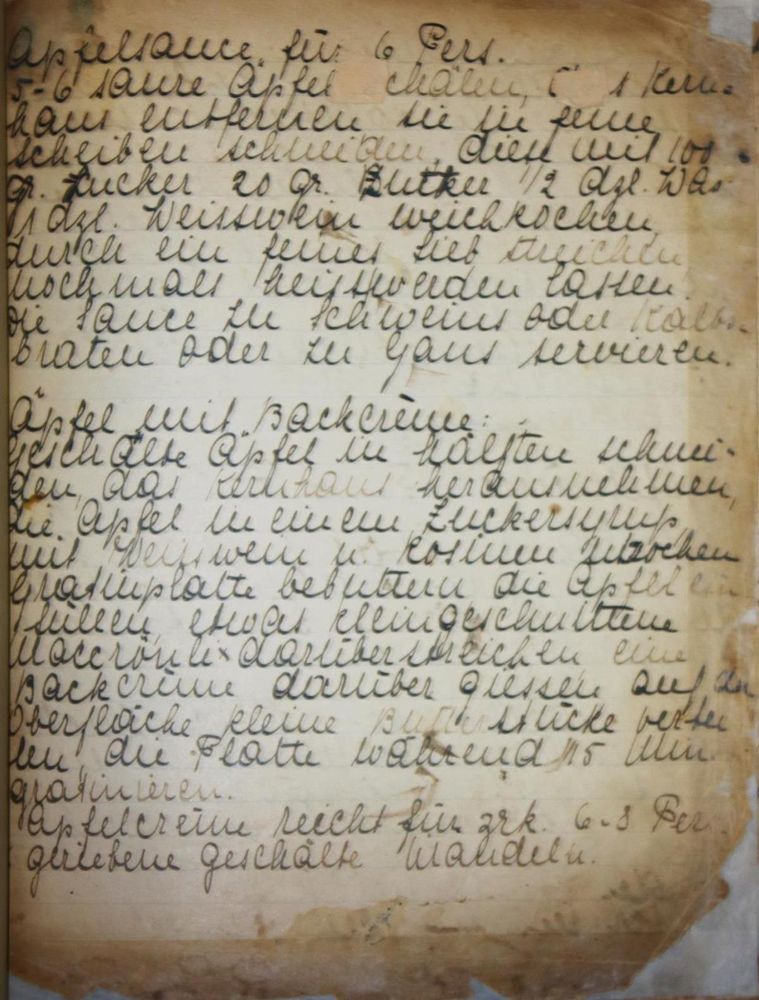 Äpfelsauce für 6 Pers.
5-6 saure Äpfel schälen, das Kern-
haus entfernen sie in feine
scheiben schneiden, diese mit 100
gr. Zucker 20 gr. Butter 1/2 dzl. Was
1 dzl. Weisswein weichkochen
durch ein feines Sieb streichen
nochmals heisswerden lassen.
die Sauce zu Schweins oder Kalbs-
braten oder zu Gans servieren.
Äpfel mit Backcrème:
Geschälte Äpfel in hälften schnei-
den, das Kernhaus herausnehmen,
die Äpfel in einem Zuckersyrup
mit Weisswein u. Rosinen kochen
Gratinplatte bebuttern die Äpfel ein
füllen, etwas kleingeschnittene
Maccrönli x darüberstreichen eine
Backcrème darüber giessen auf der
Oberfläche kleine Butterstücke vertei
len, die Platte während 15 Min.
gratinieren.
Äpfelcrème reicht für zrk. 6-8 Pers
geriebene geschälte Mandeln.